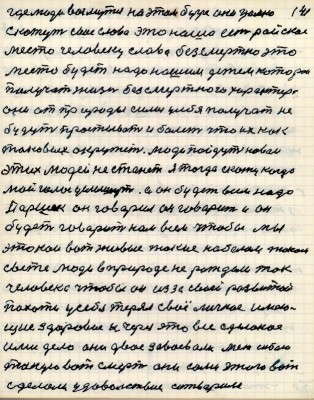 где люди возмутся на этом бугре они нужно
скажут свое слово это наше есть райское
место человеку слава бессмертно это
место будет надо нашим детям которые
получат жизнь бессмертного характера
они от природы силы у себя получат не
будут простывать и болеть что их как
таковых окружит. люди пойдут новые
этих людей не станет я тогда скажу когда
мой голос услышут. а он будет всем надо
Паршек он говорил он говорит и он
будет говорить нам всем чтобы мы
это как вот живые такие на белом таком
свете люди в природе не рождали так
человека чтобы он из за своей развитой
похоти у себя терял своё личное имею-
щие здоровье и через это все сделаное
ими дело они двое завоевали меж собою
такую вот смерть они сами этого вот
сделали удовольствие сотварили